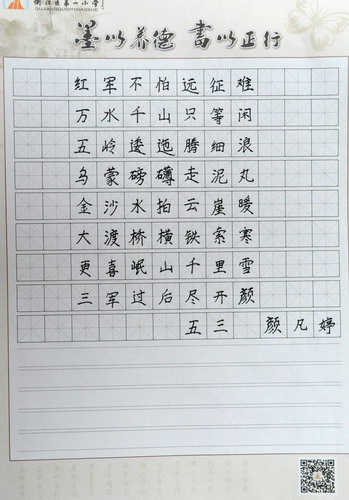 墨以养德 書以正行
红军不怕远征难
万水千山只等闲
五岭逶迤腾细浪
乌蒙磅礴走泥丸
金沙水拍云崖暖
大渡桥横铁索寒
更喜岷山千里雪
三军过后尽开颜
五三 颜凡婷